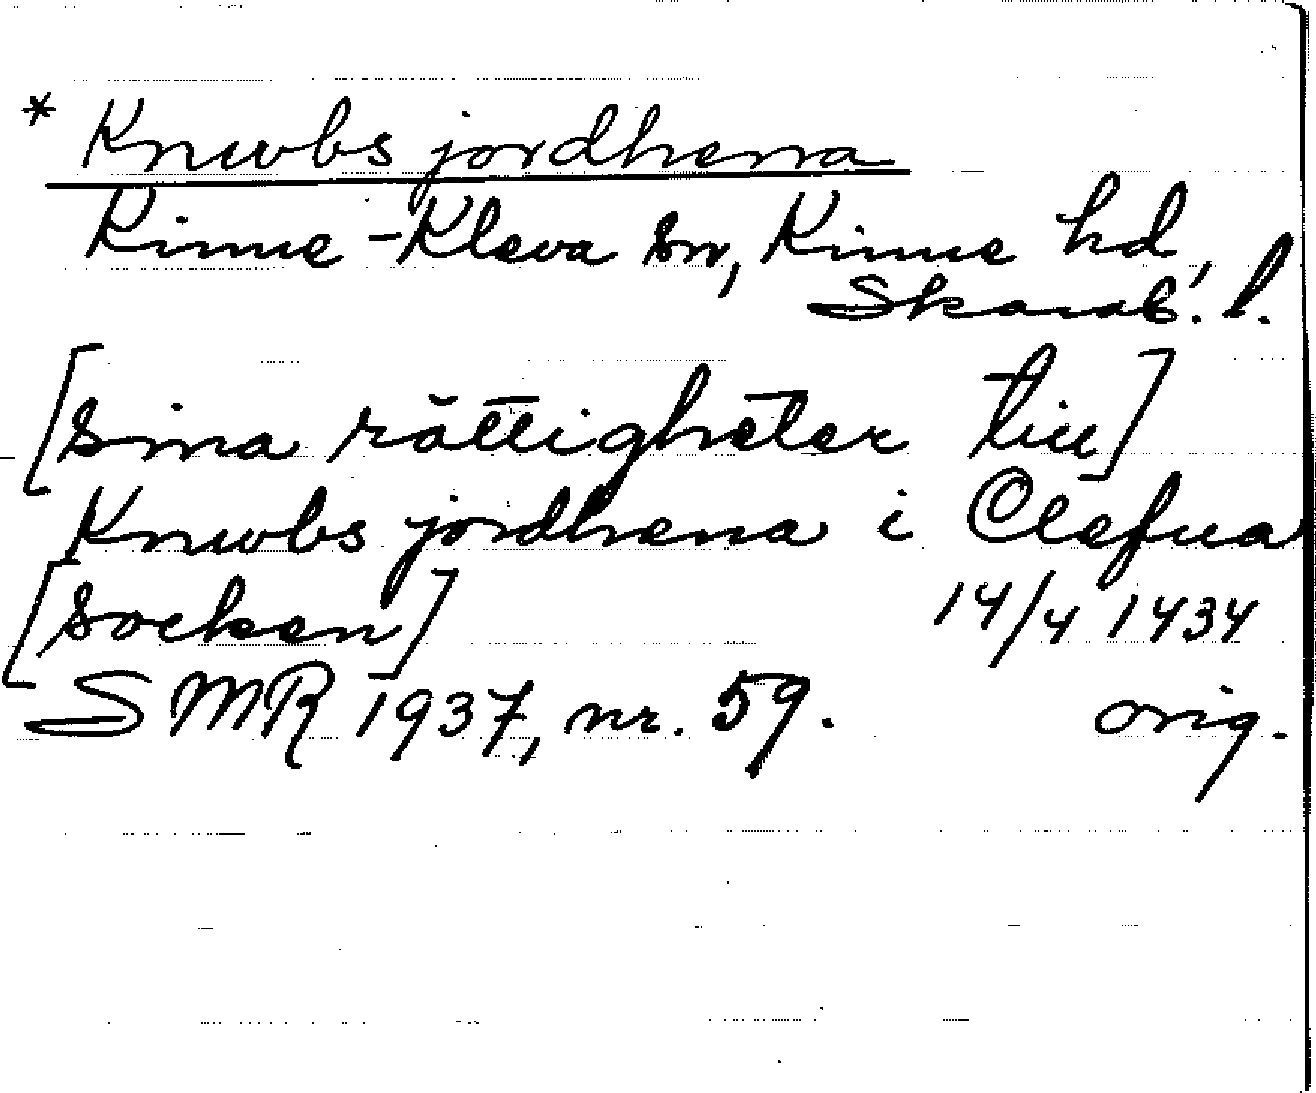 * Knwbs jordhena
Kinne-Kleva sn, Kinne hd,
Skarab. l.
[sina rättigheter till]
Knwbs jordhena i Clefua
[socken] 14/4 1434
SMR 1937, nr. 59. orig.